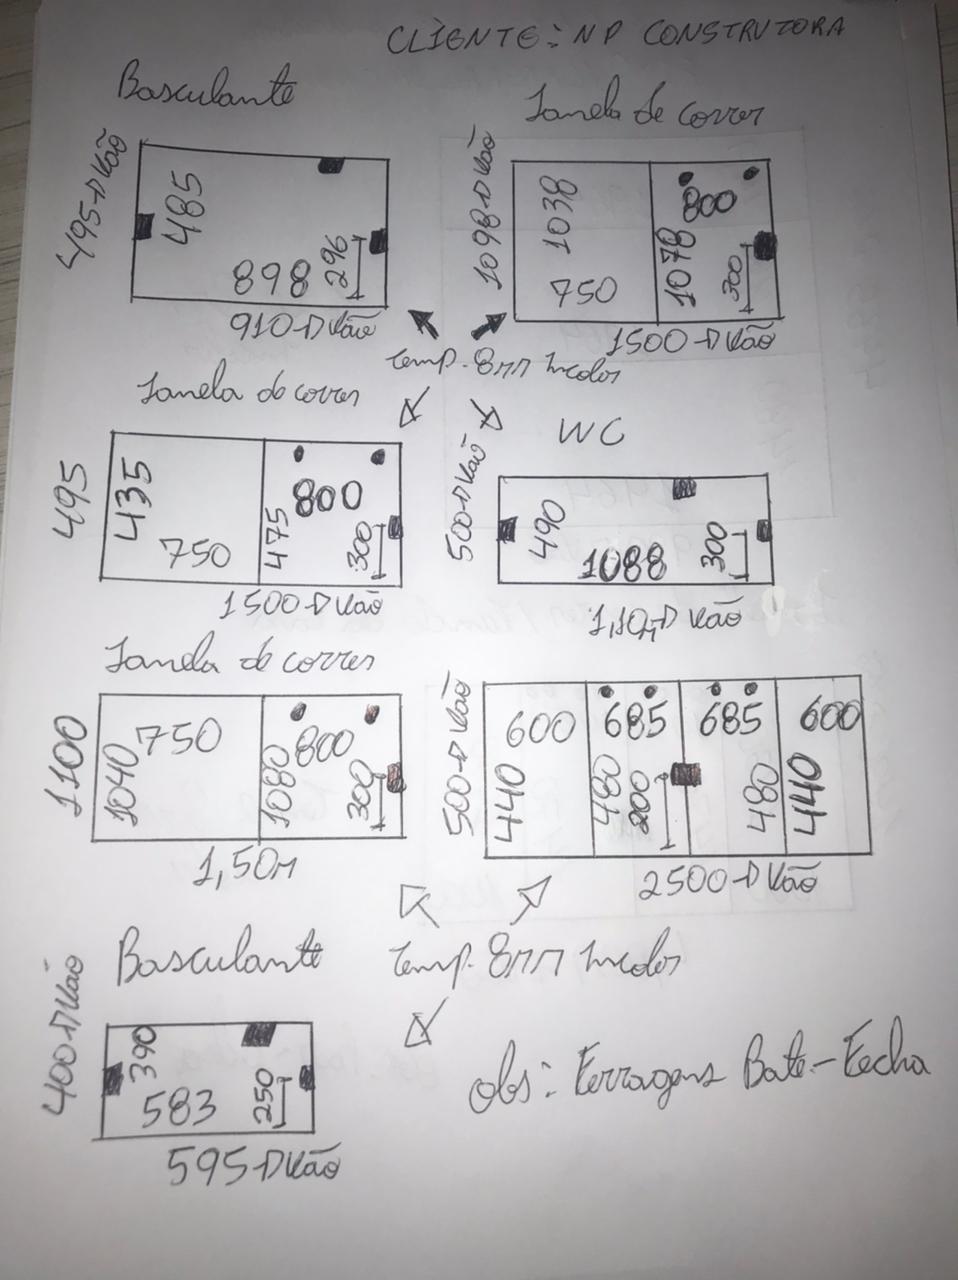 CLIENTE: NP CONSTRUTORA
Basculante
495 → Vão
485
898
296
910 → Vão
Janela de correr
1098 → Vão
1038
750
800
1078
300
1500 → Vão
Temp. 8mm Incolor
Janela de correr
495
435
750
800
475
300
1500 → Vão
WC
500 → Vão
490
1088
300
1,10m → Vão
Janela de correr
1100
750
1040
800
1080
300
1,50m
500 → Vão
600
685
685
600
440
480
200
480
440
2500 → Vão
Temp. 8mm Incolor
Basculante
400 → Vão
390
583
250
595 → Vão
Obs: Ferragens Bate-Fecha